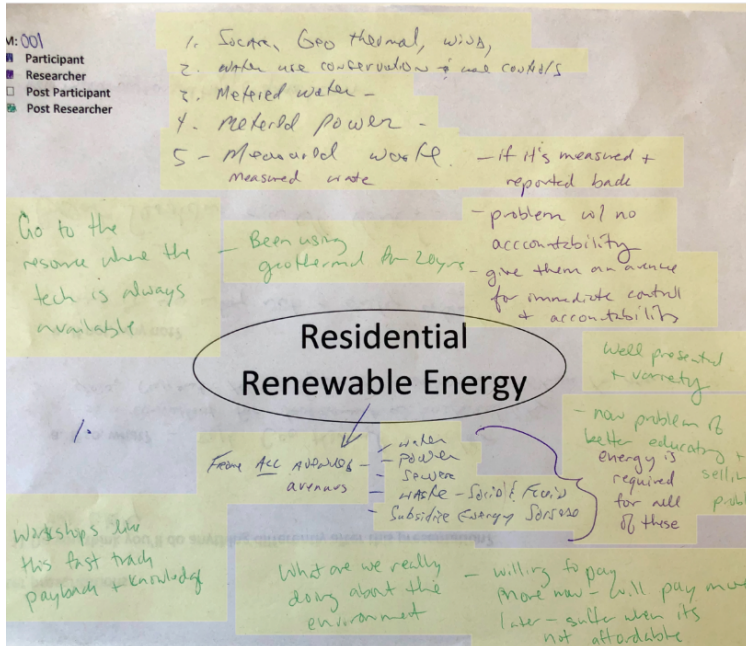 M: 001
Participant
Researcher
Post Participant
Post Researcher
1. Geo thermal, wind,
2. water use conservation + use controls
3. Metered water -
4. Meterld power -
5 - Measurld waste
Measured waste
- if it's measured +
reported back
- problem w/ no
acccountability
- give them an avenue
for immediate control
+ accountability
Go to the
resource where the
tech is always
available
- Been using
geothermal for 20yrs
Residential
Renewable Energy
Well presented
+ variety
- now problem of
better educating +
energy is
required
for all
of these
1.
From ALL avenues
avenues
- water
- power
- sewere
- waste - Solid & Fluid
- Subsidize Energy
Workshops like
this fast track
payback + knowledge
What are we really
doing about the
environment
- willing to pay
more now - will pay more
later - suffer when its
not affordable